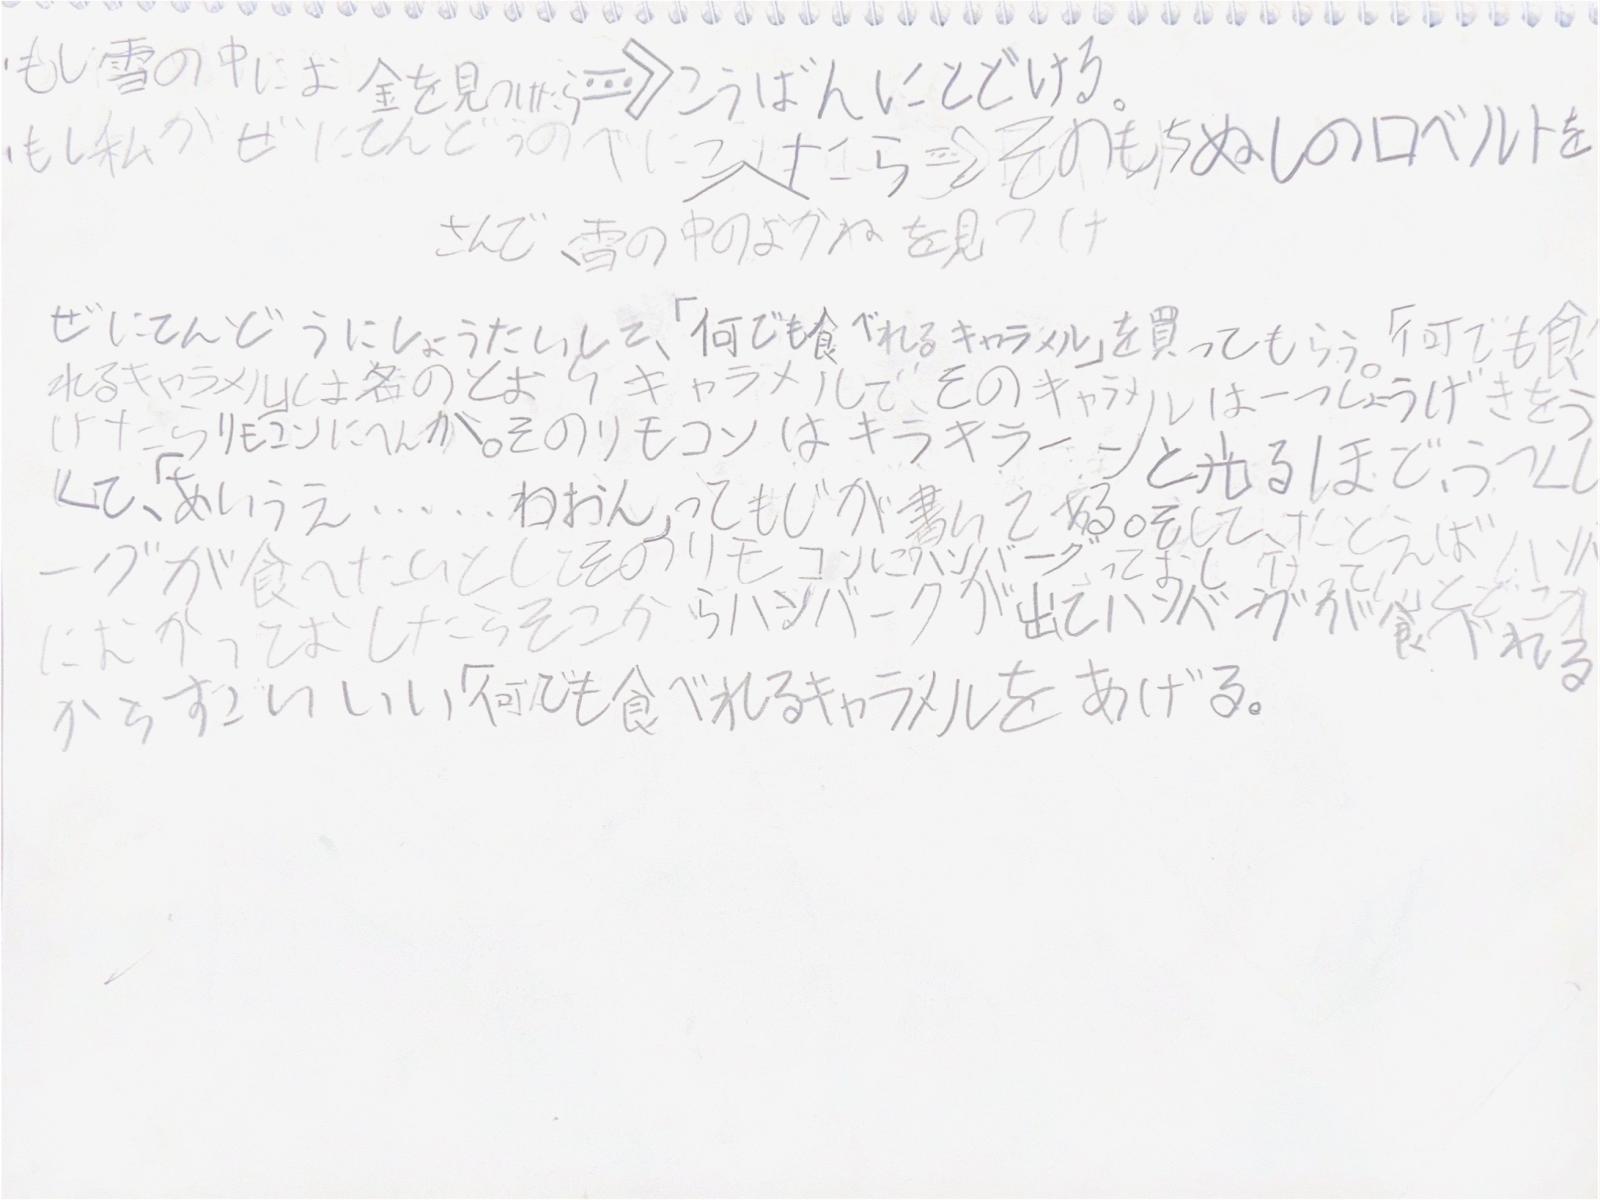 ・もし雪の中にお金を見つけたら…⇒こうばんにとどける。
・もし私がぜにてんどうのべにこ入たら…⇒そのもちぬしのロベルトを
さんで、雪の中のよかねを見つけ
ぜにてんどうにしょうたいして、「何でも食べれるキャラメル」を買ってもらう。「何でも食
れるキャラメル」は名のとおりキャラメルで、そのキャラメルは一つしょうげきをう
けたらリモコンにへんか。そのリモコンはキラキラーンと光るほど、うつくし
くて、「あいうえ……わおん」ってもじが書いてある。そして、たとえばハンバ
ーグが食べたいとしてそのリモコンにハンバーグっておし、
にむかっておしたらそこからハンバーグが出てハンバーグが食べれる
からすごいいい「何でも食べれるキャラメルをあげる。